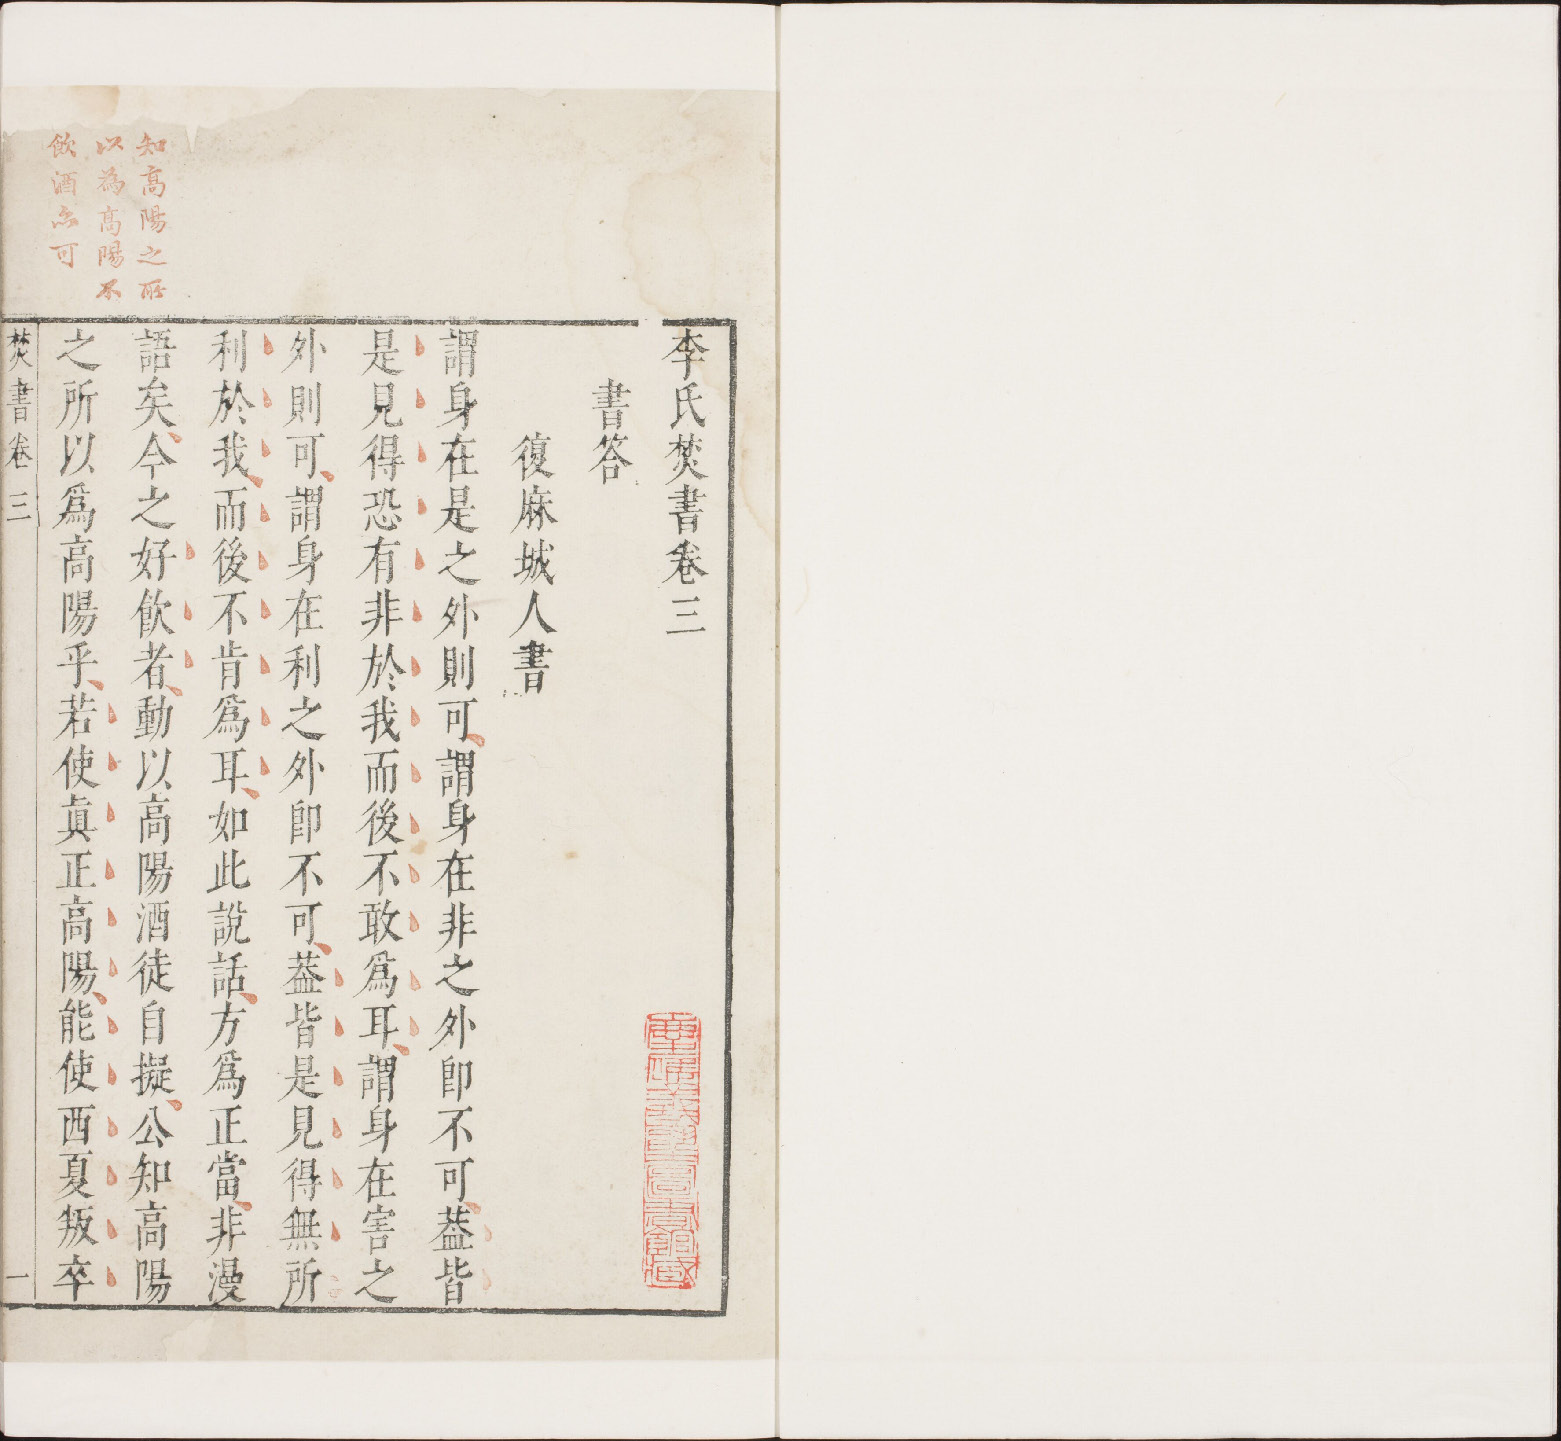 李氏焚書卷三
書答
復麻城人書
謂身在是之外則可謂身在非之外卽不可葢皆
是見得恐有非於我而後不敢爲耳謂身在害之
外則可謂身在利之外卽不可葢皆是見得無所
利於我而後不肯爲耳如此說話方爲正當非漫
語矣今之好飲者動以高陽酒徒自擬公知高陽
之所以爲高陽乎若使眞正高陽能使西夏叛卒
焚書卷三
一
知高陽之所
以為高陽不
飲酒亦可